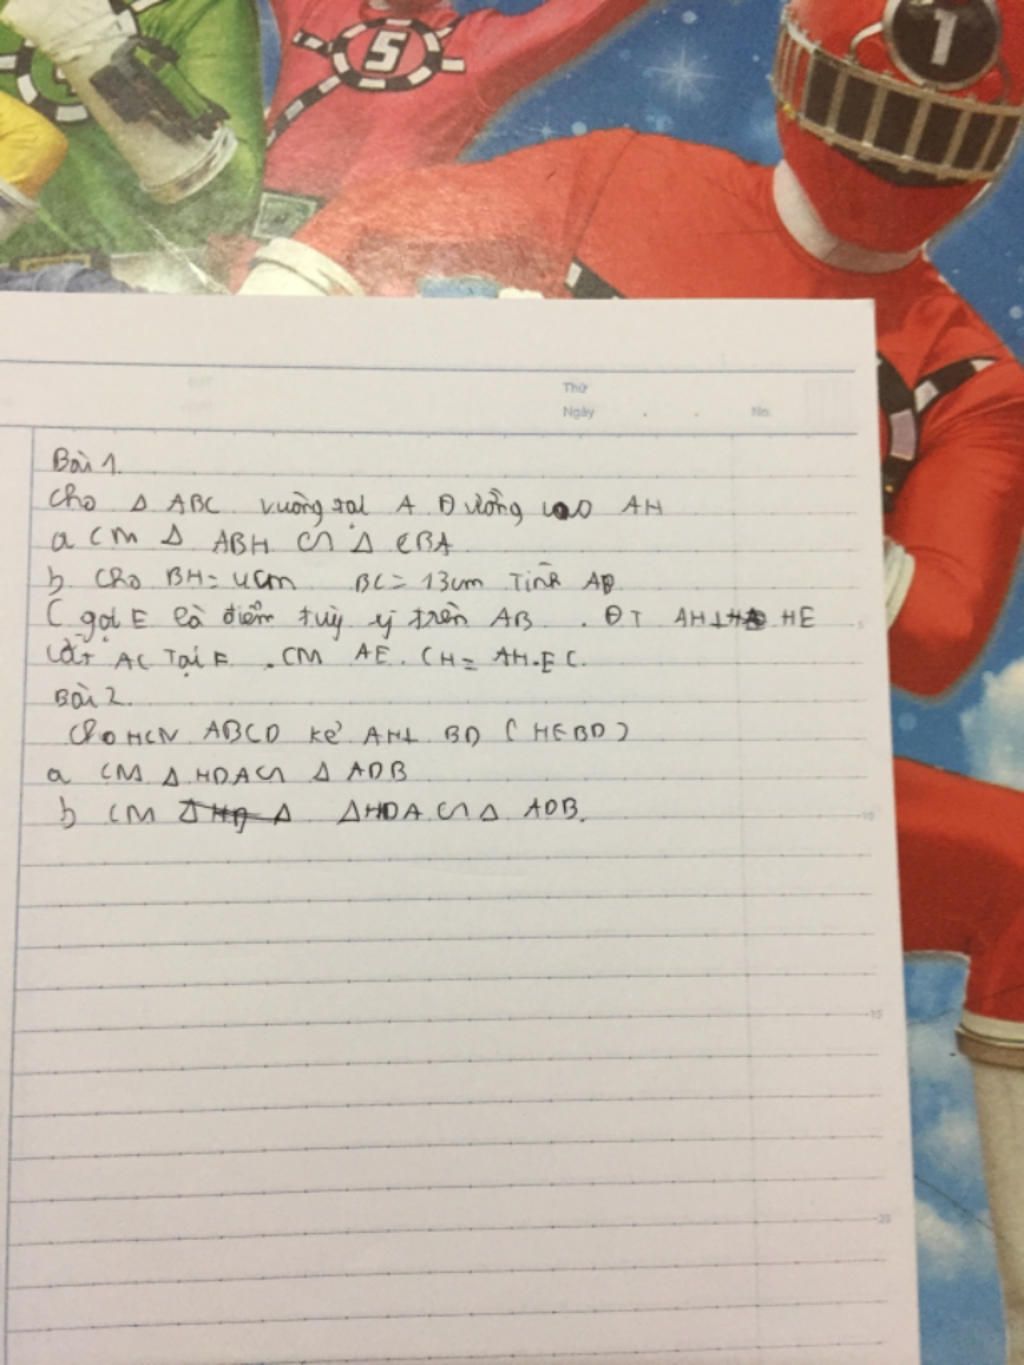 5
1
Thứ
Ngày . . No.
Bài 1.
Cho Δ ABC vuông tại A Đường cao AH
a CM Δ ABH ∽ Δ CBA
b. Cho BH= 4cm BC= 13cm Tính AB
C gọi E là điểm tuỳ ý trên AB . ĐT AH⊥ HE
5
cắt AC Tại F . CM AE. CH= AH.FC.
Bài 2.
Cho HCN ABCD kẻ AH⊥ BD ( HEBD )
a CM Δ HDA ∽ Δ ADB
b CM Δ ΔHDA ∽ Δ ADB.
10
15
20